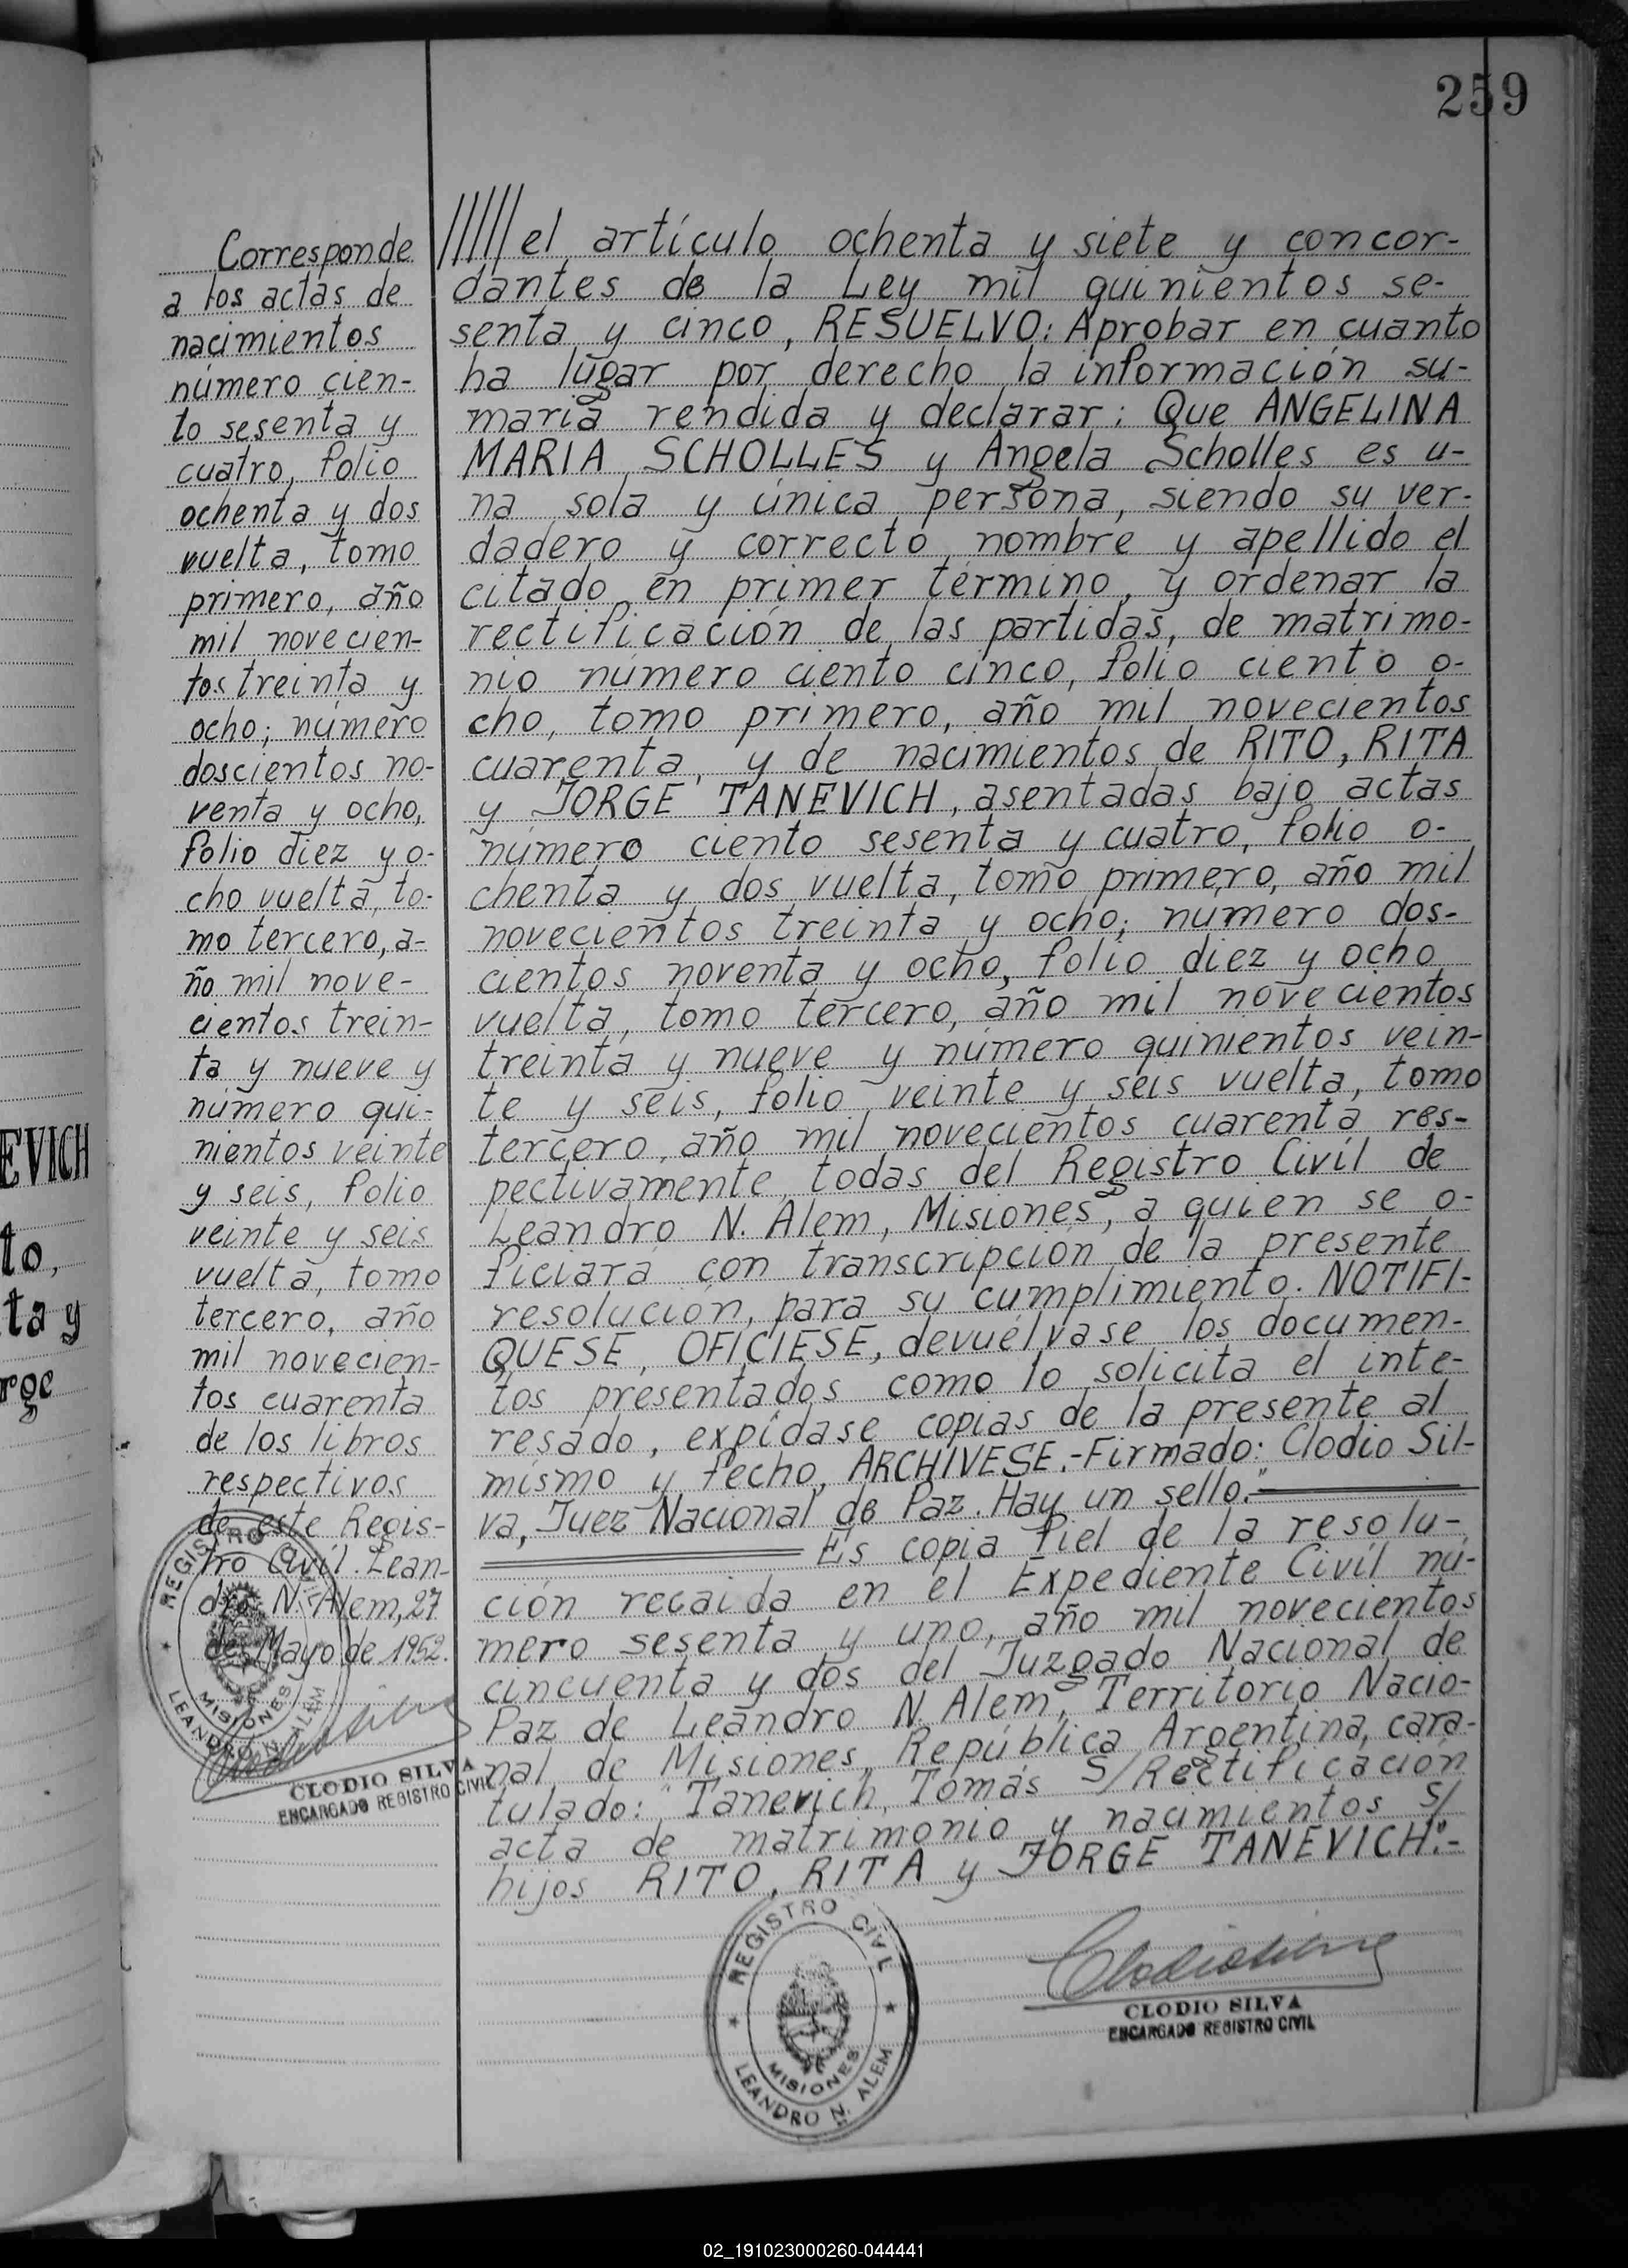 259
Corresponde
a los actas de
nacimientos
número cien-
to sesenta y
cuatro, folio
ochenta y dos
vuelta, tomo
primero, año
mil novecien-
tos treinta y
ocho; número
doscientos no-
venta y ocho,
folio diez y o-
cho vuelta, to-
mo tercero, a-
ño mil nove-
cientos trein-
ta y nueve y
número qui-
nientos veinte
y seis, folio
veinte y seis
vuelta, tomo
tercero, año
mil novecien-
tos cuarenta
de los libros
respectivos
de este Regis-
tro Civil. Lean-
dro N. Alem, 27
de Mayo de 1952.
REGISTRO CIVIL
MISIONES
LEANDRO N. ALEM
CLODIO SILVA
ENCARGADO REGISTRO CIVIL
el artículo ochenta y siete y concor-
dantes de la Ley mil quinientos se-
senta y cinco, RESUELVO: Aprobar en cuanto
ha lugar por derecho la información su-
maria rendida y declarar: Que ANGELINA
MARIA SCHOLLES y Angela Scholles es u-
na sola y única persona, siendo su ver-
dadero y correcto nombre y apellido el
citado en primer término, y ordenar la
rectificación de las partidas, de matrimo-
nio número ciento cinco, folio ciento o-
cho, tomo primero, año mil novecientos
cuarenta, y de nacimientos de RITO, RITA
y JORGE TANEVICH, asentadas bajo actas
número ciento sesenta y cuatro, folio o-
chenta y dos vuelta, tomo primero, año mil
novecientos treinta y ocho; número dos-
cientos noventa y ocho, folio diez y ocho
vuelta, tomo tercero, año mil novecientos
treinta y nueve y número quinientos vein-
te y seis, folio veinte y seis vuelta, tomo
tercero, año mil novecientos cuarenta res-
pectivamente, todas del Registro Civil de
Leandro N. Alem, Misiones, a quien se o-
ficiará con transcripción de la presente
resolución, para su cumplimiento. NOTIFI-
QUESE, OFICIESE, devuélvase los documen-
tos presentados como lo solicita el inte-
resado, expídase copias de la presente al
mismo y fecho, ARCHIVESE.-Firmado: Clodio Sil-
va, Juez Nacional de Paz. Hay un sello."
Es copia fiel de la resolu-
ción recaida en el Expediente Civil nú-
mero sesenta y uno, año mil novecientos
cincuenta y dos del Juzgado Nacional de
Paz de Leandro N. Alem, Territorio Nacio-
nal de Misiones, República Argentina, cara-
tulado: "Tanevich, Tomás S/Rectificación
acta de matrimonio y nacimientos s/
hijos RITO, RITA y JORGE TANEVICH".-
REGISTRO CIVIL
MISIONES
LEANDRO N. ALEM
Clodio Silva
CLODIO SILVA
ENCARGADO REGISTRO CIVIL
EVICH
to,
ta y
rge
02_191023000260-044441